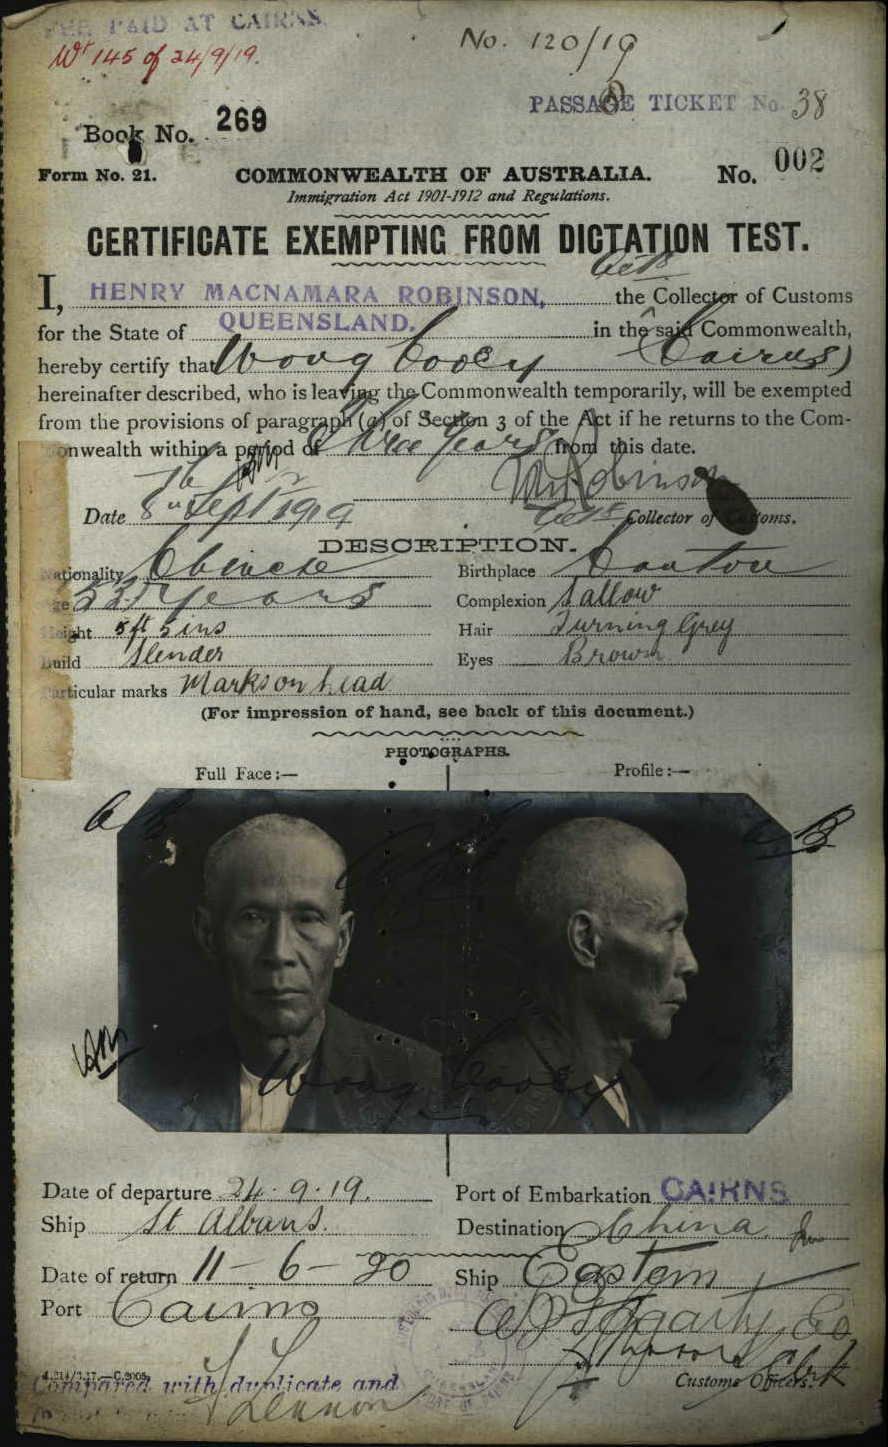 FEE PAID AT CAIRNS.
No. 120/19
Wt 145 of 24/9/19.
PASSAGE TICKET No. 38
Book No. 269
Form No. 21.
COMMONWEALTH OF AUSTRALIA.
No. 002
Immigration Act 1901-1912 and Regulations.
CERTIFICATE EXEMPTING FROM DICTATION TEST.
I, HENRY MACNAMARA ROBINSON, the Collector of Customs
for the State of QUEENSLAND. in the said Commonwealth,
hereby certify that Wong Cooey (Cairns)
hereinafter described, who is leaving the Commonwealth temporarily, will be exempted
from the provisions of paragraph (a) of Section 3 of the Act if he returns to the Com-
monwealth within a period of Three Years from this date.
Date 8th Sept. 1919
Collector of Customs.
DESCRIPTION.
Nationality Chinese Birthplace Canton
Age years Complexion Sallow
Height 5ft 5ins Hair Turning Grey
Build Slender Eyes Brown
Particular marks Marks on head
(For impression of hand, see back of this document.)
PHOTOGRAPHS.
Full Face:— Profile:—
Wong Cooey
Date of departure 24.9.19. Port of Embarkation CAIRNS
Ship St Albans. Destination China
Date of return 11-6-20 Ship Eastern
Port Cairns
Customs Officers.
Compared with duplicate and
Lennon